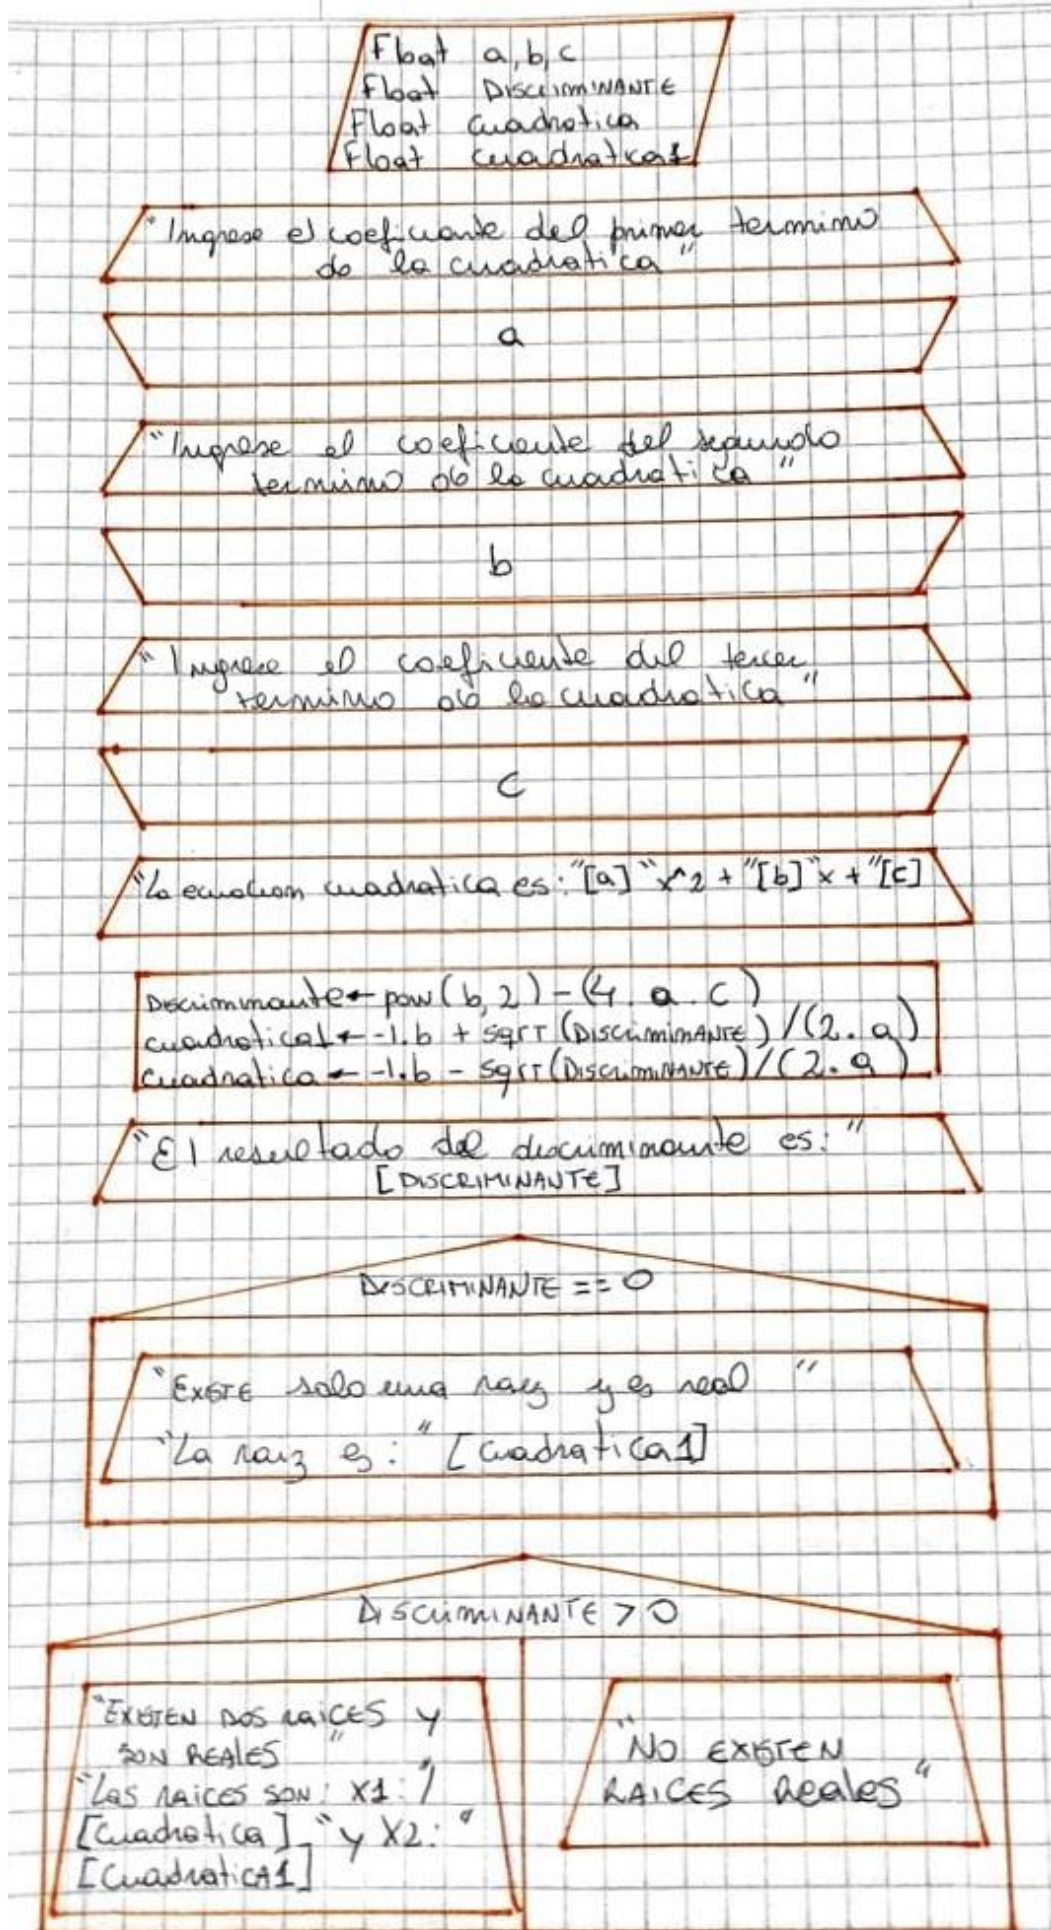 Float a, b, c
Float DISCRIMINANTE
Float cuadratica
Float cuadratica1
"Ingrese el coeficiente del primer termino
de la cuadratica"
a
"Ingrese el coeficiente del segundo
termino de la cuadratica"
b
"Ingrese el coeficiente del tercer
termino de la cuadratica"
c
"La ecuacion cuadratica es: "[a] "x^2 + "[b]"x + "[c]
Discriminante ← pow(b, 2) - (4. a. c)
cuadratica1 ← -1.b + sqrt (DISCRIMINANTE) / (2. a)
cuadratica ← -1.b - sqrt (DISCRIMINANTE) / (2. a)
"El resultado del discriminante es: "
[DISCRIMINANTE]
DISCRIMINANTE == 0
"EXISTE solo una raiz y es real "
"La raiz es: " [cuadratica1]
DISCRIMINANTE > 0
"EXISTEN DOS RAICES y
SON REALES "
"LAS RAICES SON: X1: "
[cuadratica] "y X2: "
[CuadraticA1]
"NO EXISTEN
RAICES Reales"